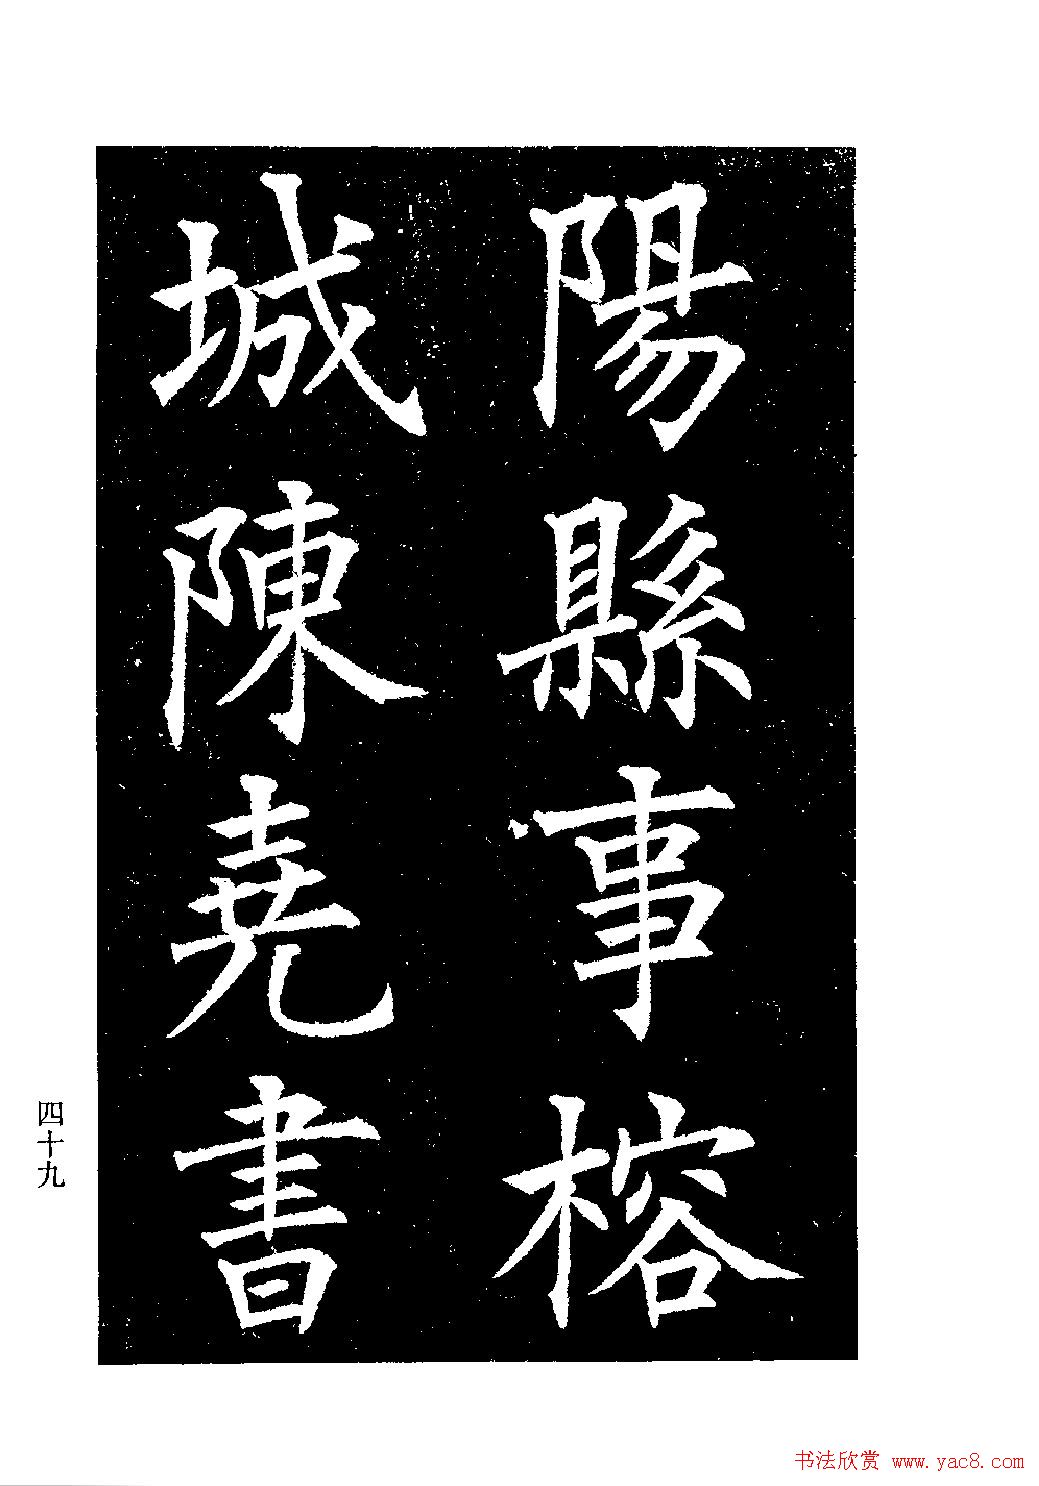 陽縣事榕
城陳堯書
四十九
书法欣赏 www.yac8.com